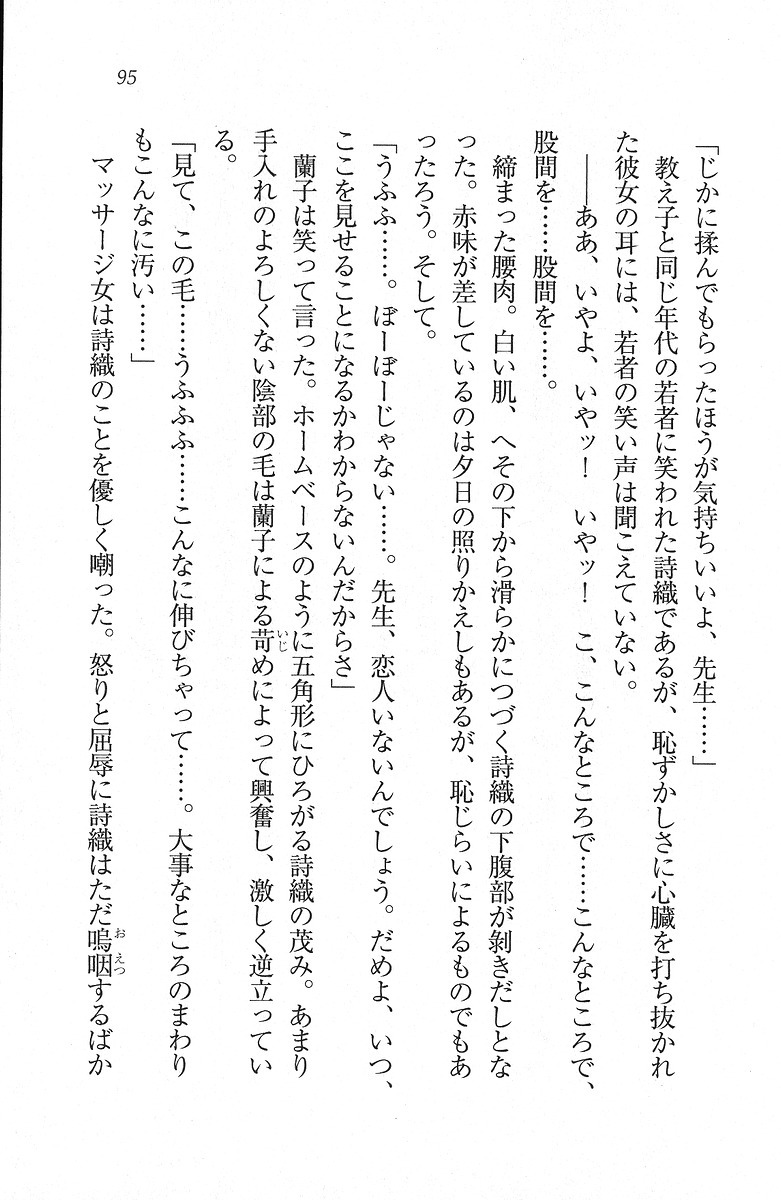 95
「じかに揉んでもらったほうが気持ちいいよ、先生……」
教え子と同じ年代の若者に笑われた詩織であるが、恥ずかしさに心臓を打ち抜かれ
た彼女の耳には、若者の笑い声は聞こえていない。
――ああ、いやよ、いやッ！　いやッ！　こ、こんなところで……こんなところで、
股間を……股間を……。
締まった腰肉。白い肌、へその下から滑らかにつづく詩織の下腹部が剝きだしとな
った。赤味が差しているのは夕日の照りかえしもあるが、恥じらいによるものでもあ
ったろう。そして。
「うふふ……。ぼーぼーじゃない……。先生、恋人いないんでしょう。だめよ、いつ、
ここを見せることになるかわからないんだからさ」
蘭子は笑って言った。ホームベースのように五角形にひろがる詩織の茂み。あまり
手入れのよろしくない陰部の毛は蘭子による苛めによって興奮し、激しく逆立ってい
る。
「見て、この毛……うふふふ……こんなに伸びちゃって……。大事なところのまわり
もこんなに汚い……」
マッサージ女は詩織のことを優しく嘲った。怒りと屈辱に詩織はただ嗚咽するばか